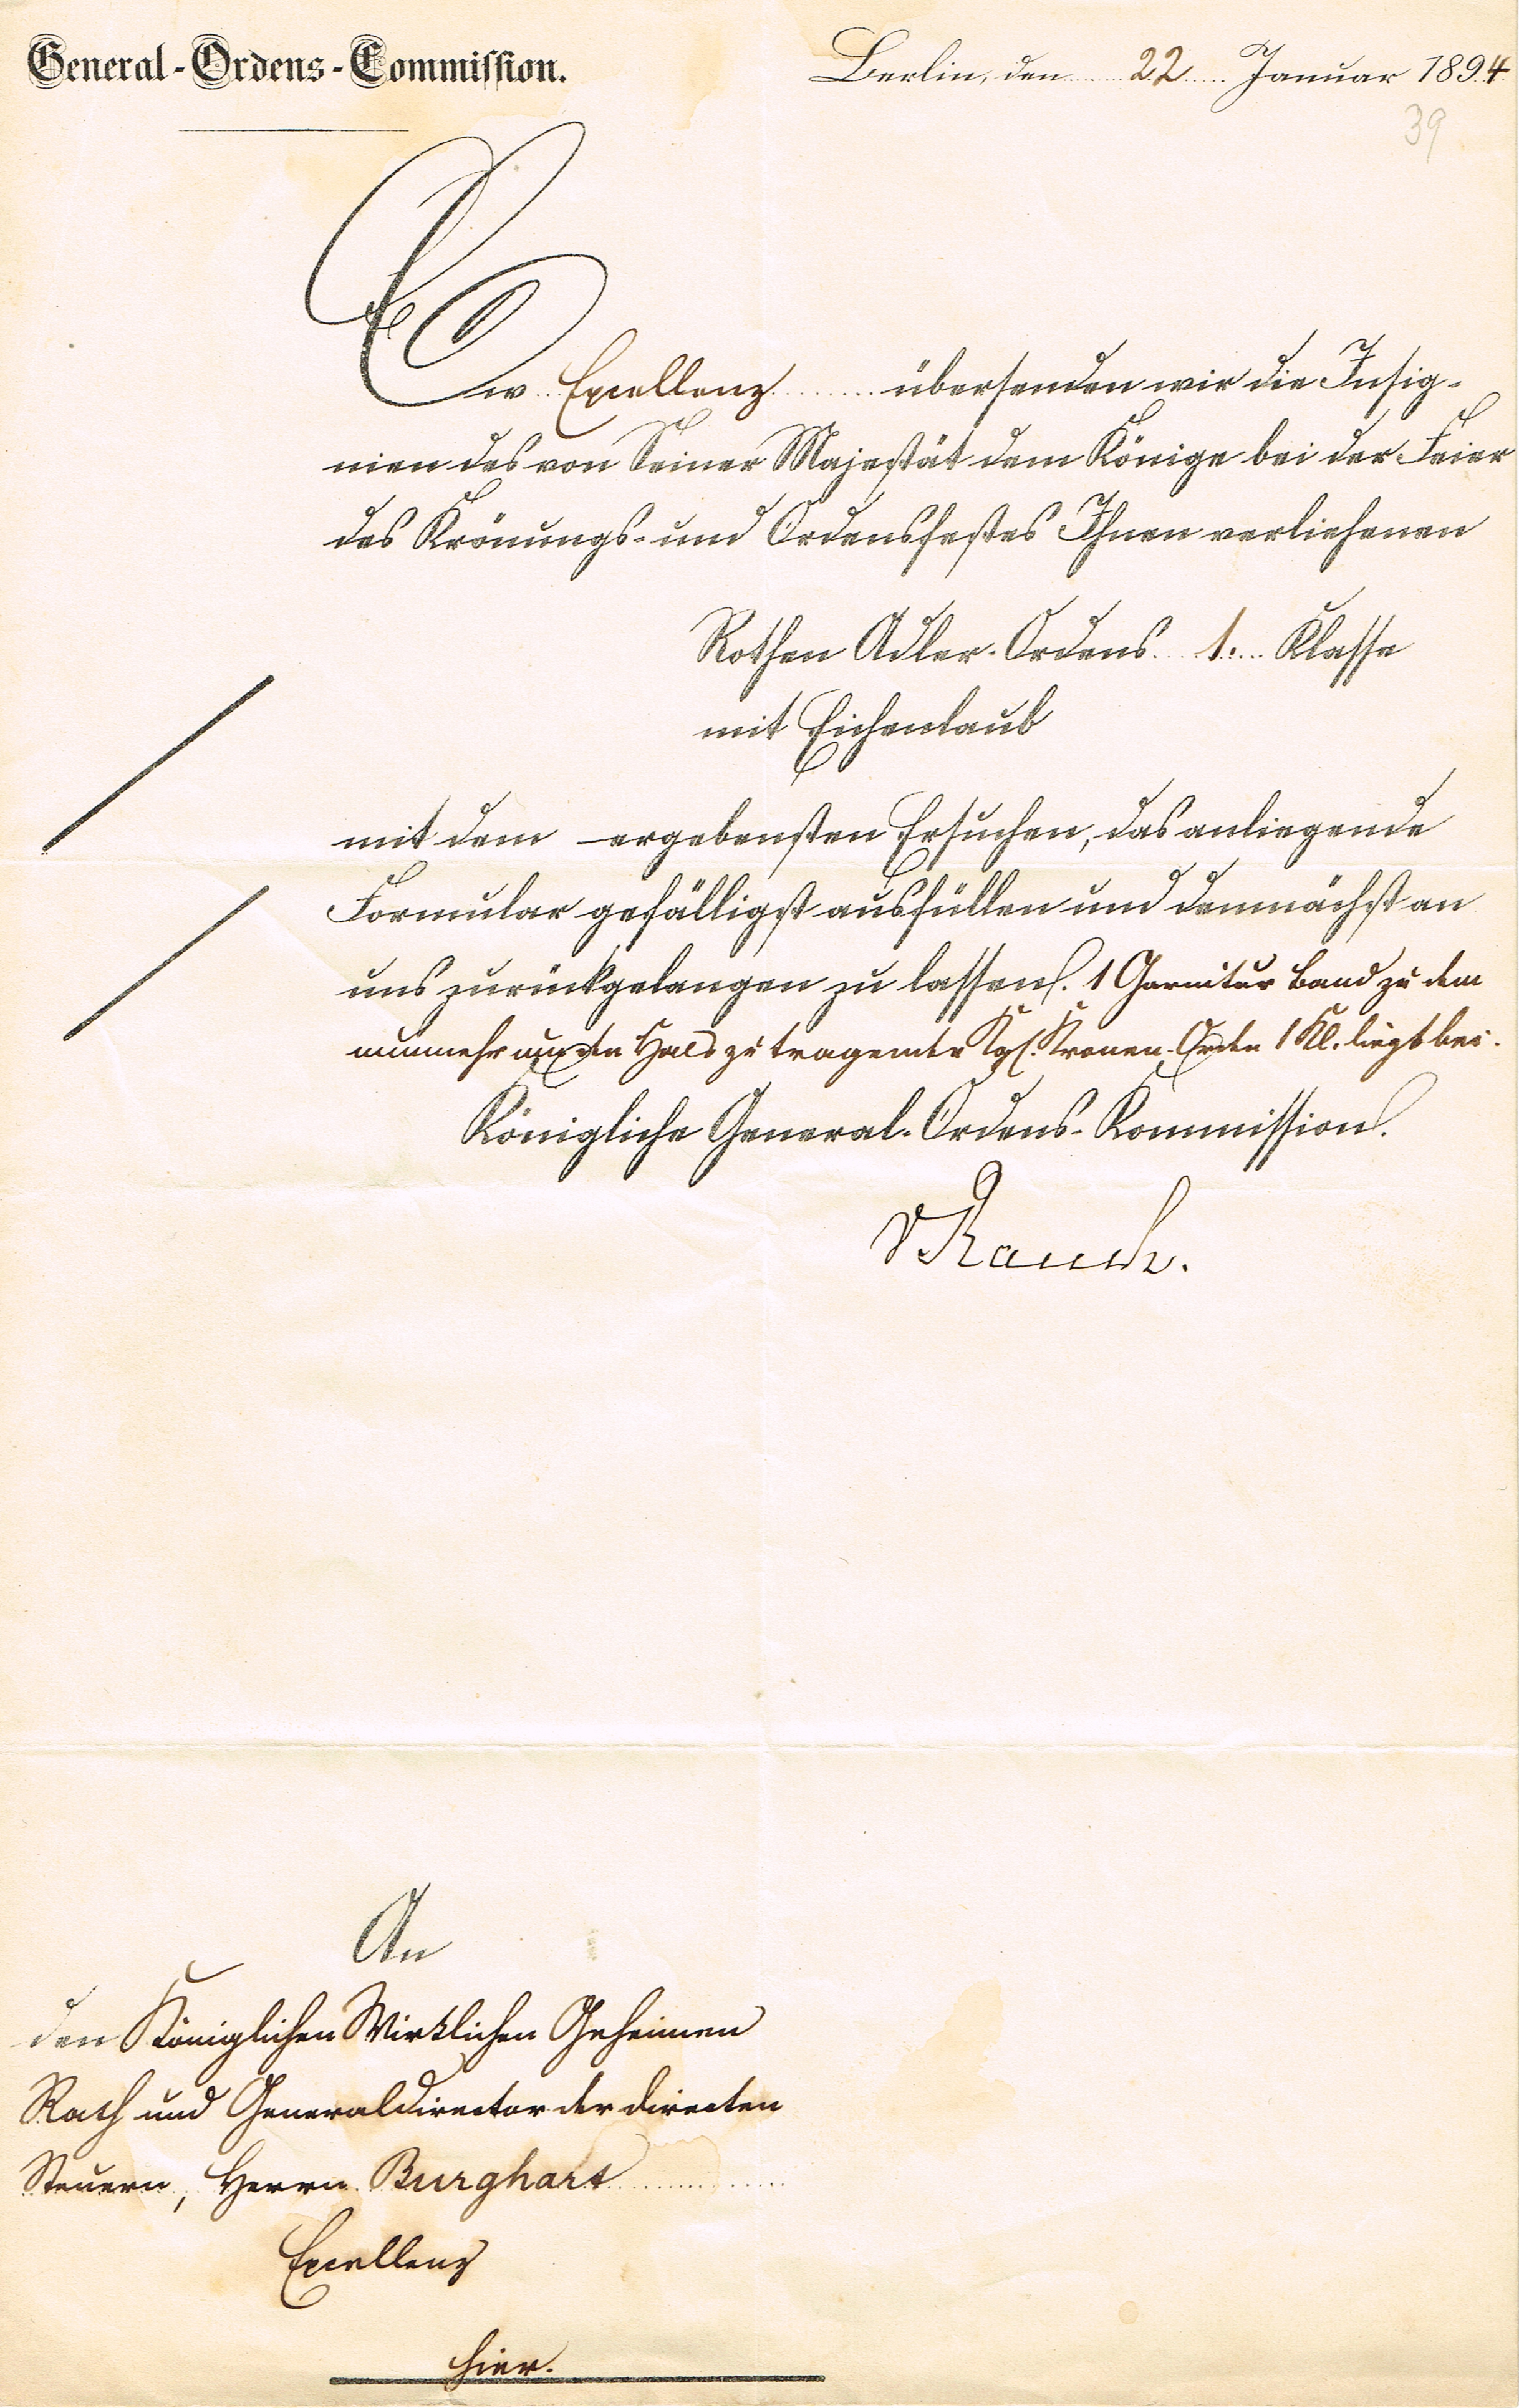 General-Ordens-Commission.
Berlin, den 22 Januar 1894
39
Ew. Excellenz übersenden wir die Insig-
nien des von Seiner Majestät dem Könige bei der Feier
des Krönungs- und Ordensfestes Ihnen verliehenen
Rothen Adler-Ordens 1. Klasse
mit Eichenlaub
mit dem ergebensten Ersuchen, das anliegende
Formular gefälligst ausfüllen und demnächst an
uns zurückgelangen zu lassen. 1 Garnitur Band zu dem
nunmehr um den Hals zu tragenden Kgl. Kronen-Orden 1 Kl. liegt bei.
Königliche General-Ordens-Kommission.
v Rauch.
An
den Königlichen Wirklichen Geheimen
Rath und Generaldirector der directen
Steuern, Herrn Burghart
Excellenz
hier.